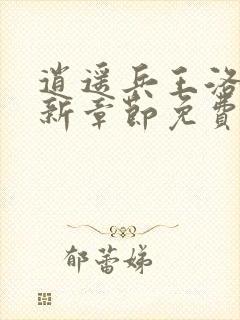 逍遥兵王洛
新章節免費
郁蕾娣